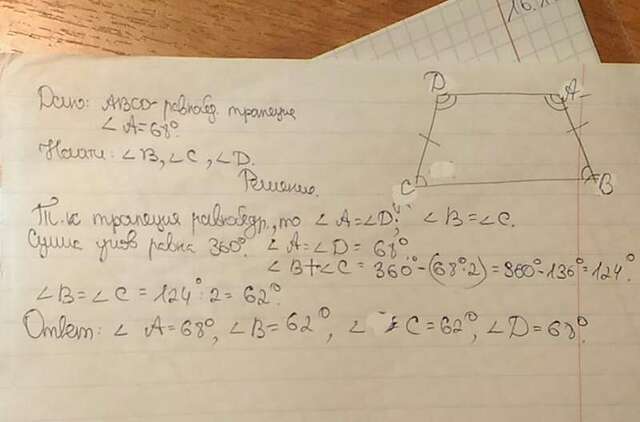 16.1
Дано: ABCD равнобед. трапеция
∠ A = 68°.
Найти: ∠B, ∠C, ∠D.
Решение.
D A
C B
Т.к трапеция равнобедр., то ∠A=∠D; ∠B=∠C.
Сумма углов равна 360°. ∠A=∠D = 68°.
∠B+∠C = 360°-(68°·2)=360°-136°=124°.
∠B=∠C=124°:2=62°.
Ответ: ∠ A=68°, ∠B=62°, ∠ C=62°, ∠D=68°.